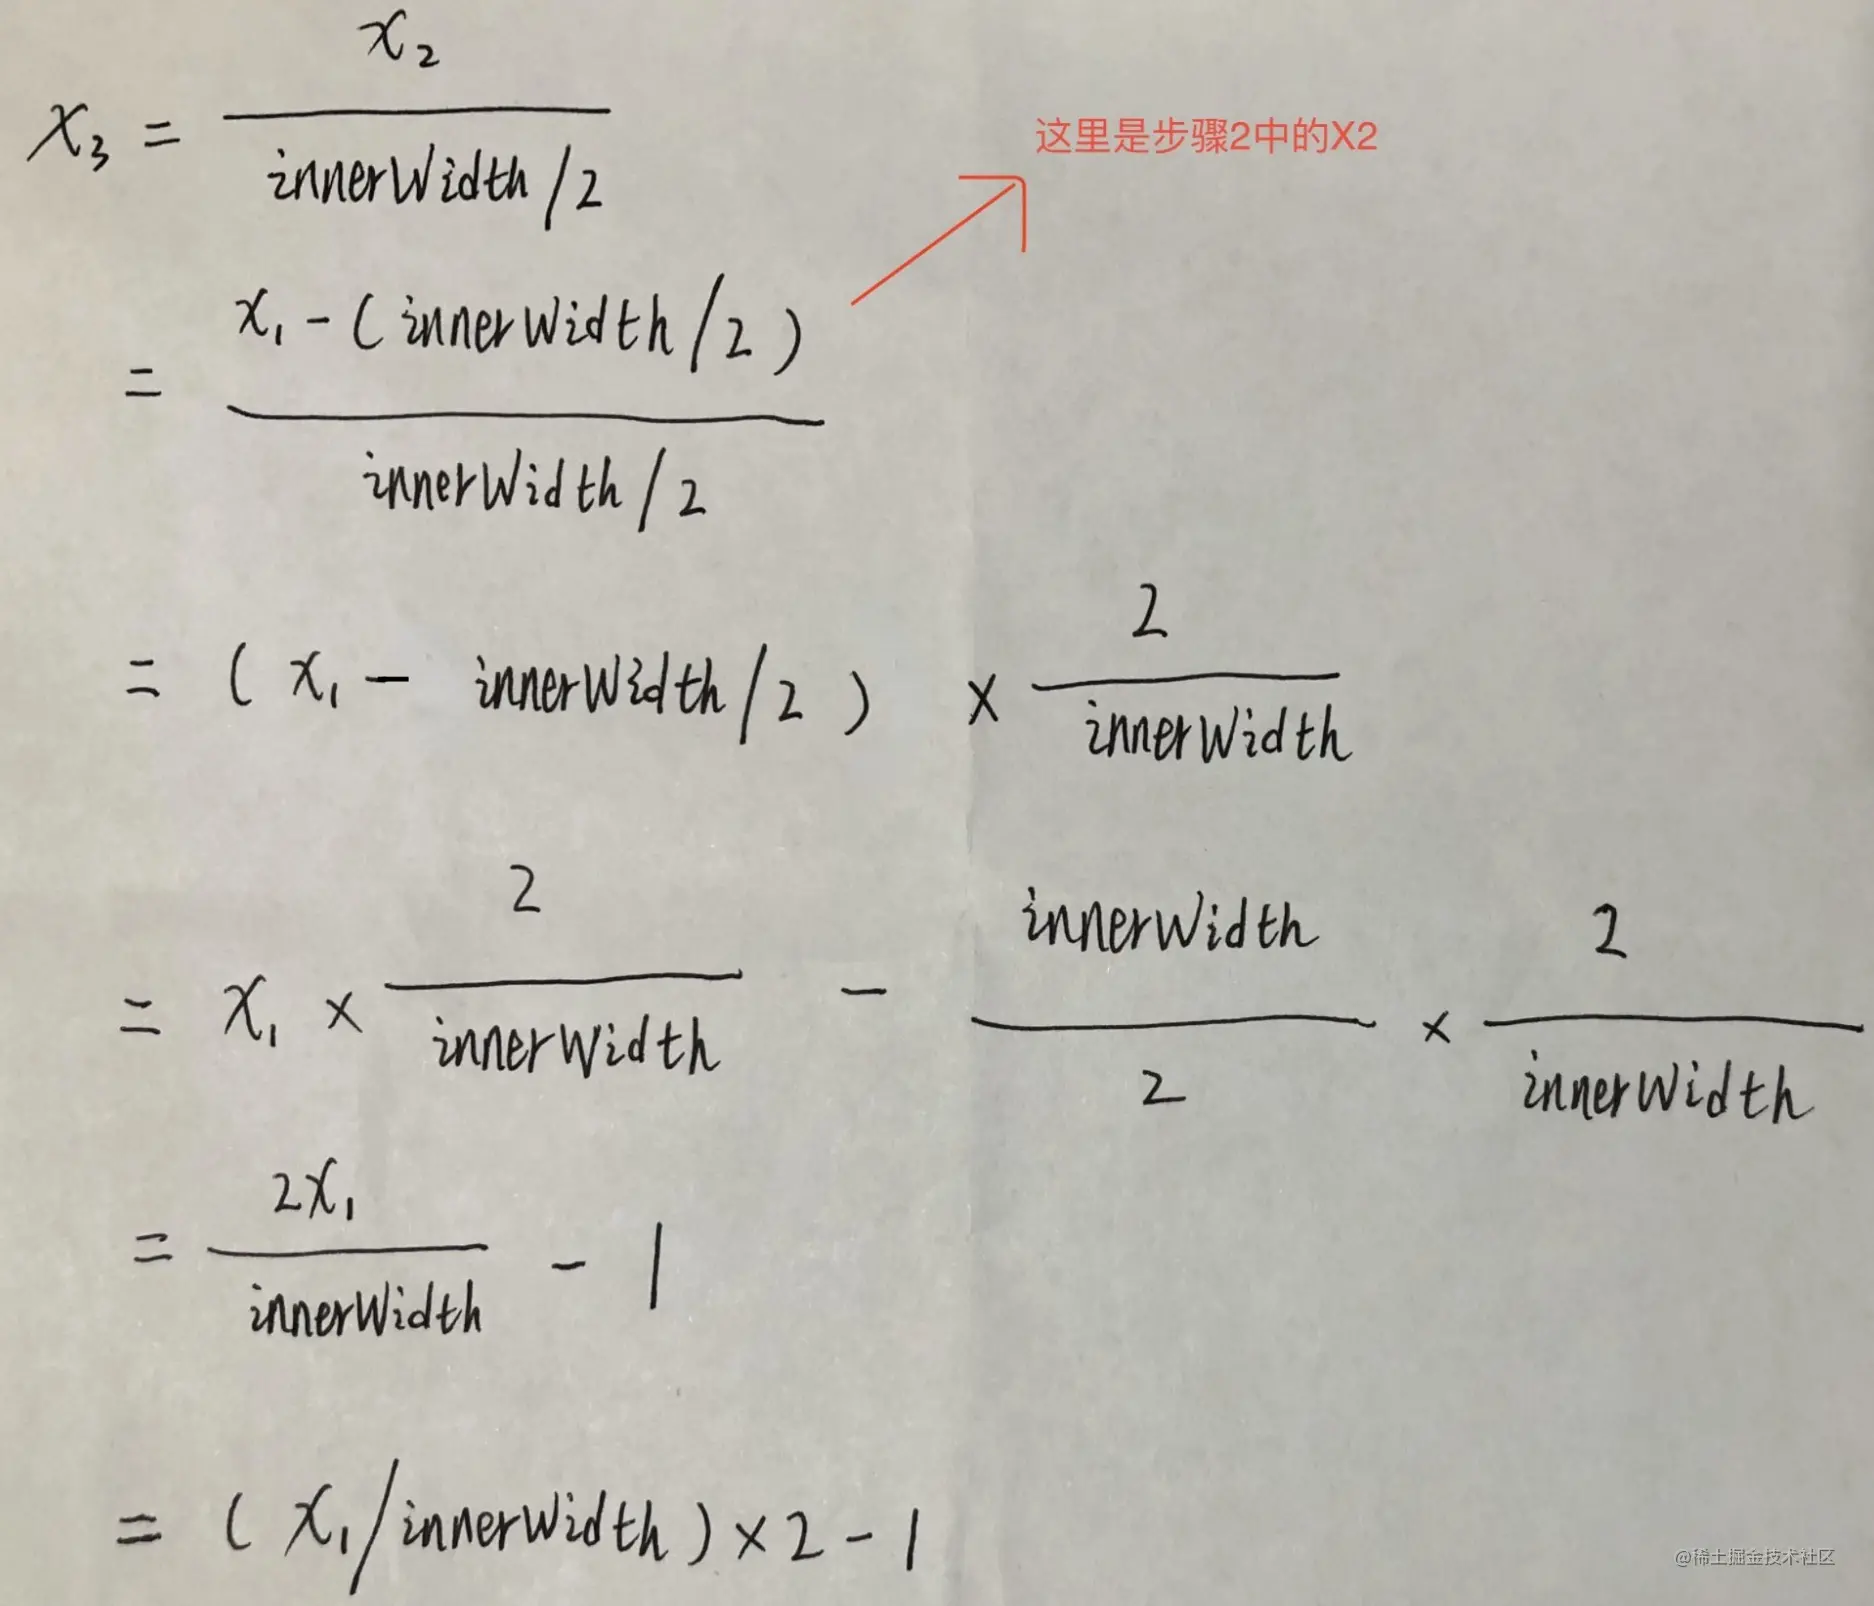 x₃ = x₂ / (innerWidth/2)
这里是步骤2中的X2
= (x₁ - (innerWidth/2)) / (innerWidth/2)
= (x₁ - innerWidth/2) × 2 / innerWidth
= x₁ × 2 / innerWidth - innerWidth / 2 × 2 / innerWidth
= 2x₁ / innerWidth - 1
= (x₁/innerWidth) × 2 - 1
@稀土掘金技术社区